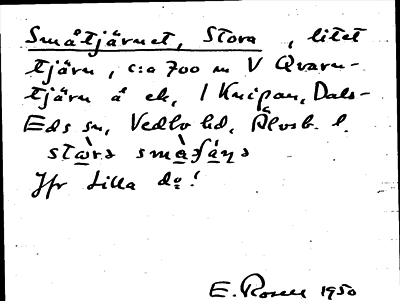 Småtjärnet, Stora, litet
tjärn, c:a 700 m V Qvarn-
tjärn å ek, 1 Knipan, Dals-
Eds sn, Vedbo hd, Älvsb. l.
Jfr Lilla d:o!
E. Rosell 1950